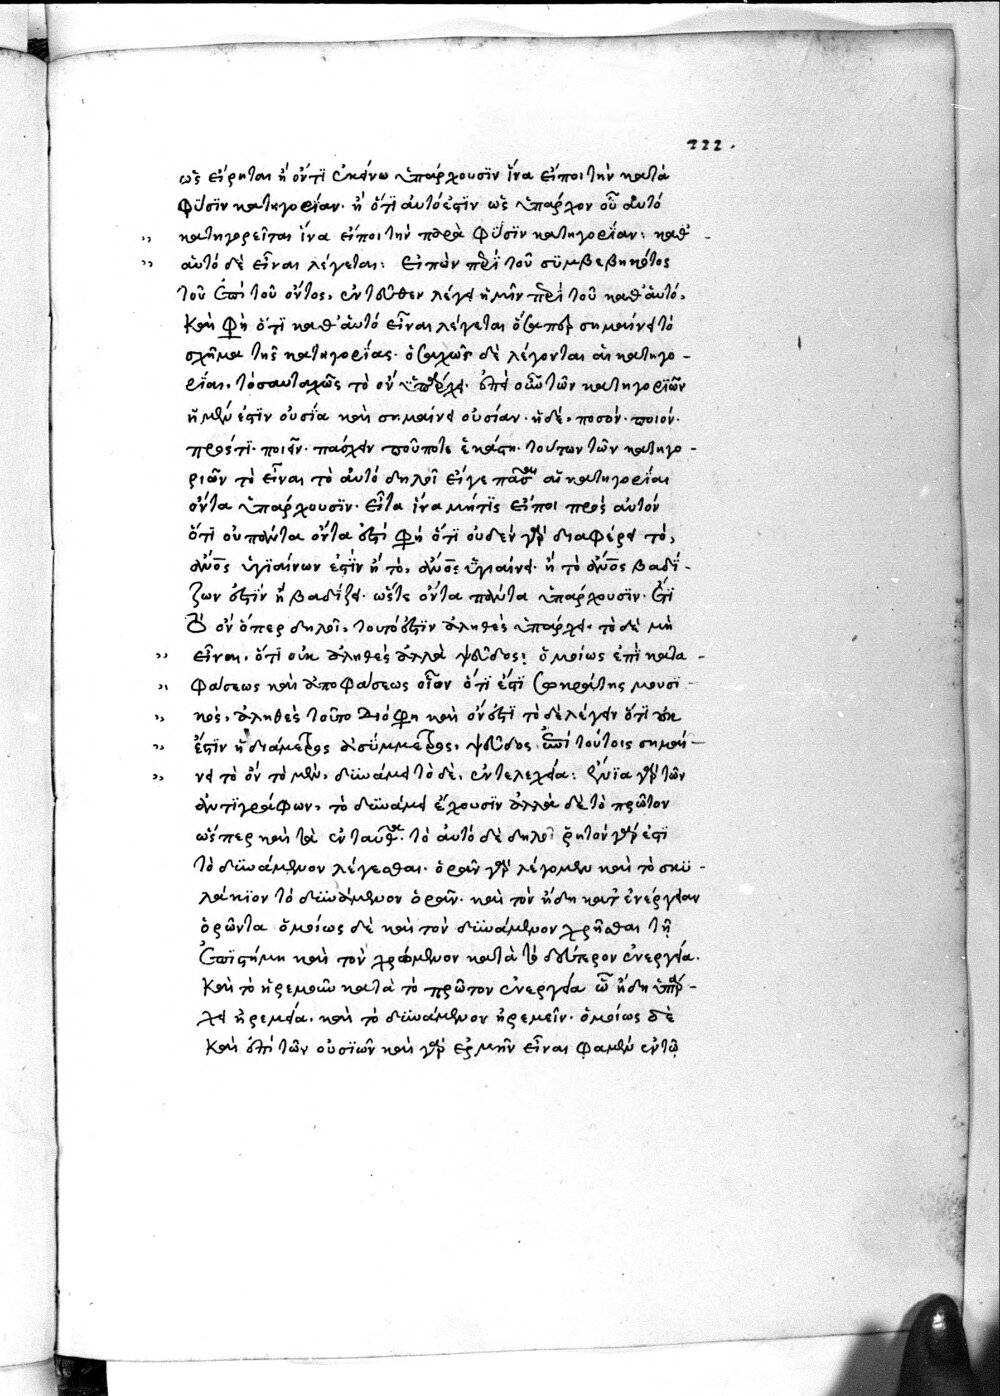 222.
ὡς εἴρηται ἢ ὄντι ἐκείνω ὑπάρχουσϊν ἵνα εἴποι τὴν κατὰ
φύσϊν κατηγορίαν· ἢ ὅτι αὐτό ἐστϊν ὡς ὑπάρχον οὗ αὐτὸ
κατηγορεῖται ἵνα εἴποι τὴν παρὰ φύσϊν κατηγορίαν: καθ'
αὑτὸ δὲ εἶναι λέγεται: Εἰπὼν περὶ τοῦ συμβεβηκότος
τοῦ ἐπὶ τοῦ ὄντος, ἐντεῦθεν λέγει ἡμῖν περὶ τοῦ καθ' αὑτό.
καὶ φη ὅτι καθ' αὑτὸ εἶναι λέγεται ὅσαπερ σημαίνει τὸ
σχῆμα τῆς κατηγορίας· ὁσαχῶς δὲ λέγονται αἱ κατηγο-
ρίαι, τοσαυταχῶς τὸ ὂν ὑπάρχει· ἐπεὶ οὖν τῶν κατηγοριῶν
ἡ μέν ἐστϊν οὐσία καὶ σημαίνει οὐσίαν· ἡ δὲ, ποσόν· ποιόν·
πρός τι· ποιεῖν· πάσχειν ποῦ ποτε ἑκάστη· τούτων τῶν κατηγο-
ριῶν τὸ εἶναι τὸ αὐτὸ δηλοῖ εἴγε πᾶσαι αἱ κατηγορίαι
ὄντα ὑπάρχουσϊν· εἶτα ἵνα μήτις εἴποι πρὸς αὐτὸν
ὅτι οὐ πάντα ὄντα ἐστί φη ὅτι οὐδὲν γὰρ διαφέρει τὸ,
ἄνος ὑγιαίνων ἐστὶν ἢ τὸ, ἄνος ὑγιαίνει· ἢ τὸ ἄνος βαδί-
ζων ἐστϊν ἢ βαδίζει· ὥστε ὄντα πάντα ὑπάρχουσϊν· ἔτι
τὸ ὂν ὅπερ δηλοῖ, τουτέστϊν ἀληθὲς ὑπάρχει· τὸ δὲ μὴ
εἶναι, ὅτι οὐκ ἀληθὲς ἀλλὰ ψεῦδος: ὁμοίως ἐπὶ κατα-
φάσεως καὶ ἀποφάσεως οἷον ὅτι ἐστϊ σωκράτης μουσϊ-
κὸς, ἀληθὲς τοῦτο διό φη καὶ ὂν ἐστϊ τὸ δὲ λέγειν ὅτι οὐκ
ἔστϊν ἡ διάμετρος ἀσύμμετρος, ψεῦδος ἐπὶ τούτοις σημαί-
νει τὸ ὂν τὸ μὲν, δυνάμει τὸ δὲ, ἐντελεχεία: ἔνϊα γὰρ τῶν
ἀντιγράφων, τὸ δυνάμει ἔχουσϊν ἀλλὰ δὲ τὸ πρῶτον
ὥσπερ καὶ τὰ ἐνταῦθα· τὸ αὐτὸ δὲ δηλοῖ ῥητὸν γάρ ἐστϊ
τὸ δυνάμενον λέγεσθαι· ὁρᾶν γὰρ λέγομεν καὶ τὸ σκυ-
λάκιον τὸ δυνάμενον ὁρᾶν· καὶ τὸν ἤδη κατ' ἐνέργειαν
ὁρῶντα ὁμοίως δὲ καὶ τὸν δυνάμενον χρῆσθαι τῆ
ἐπιστήμη καὶ τὸν χρώμενον κατὰ τὸ δεύτερον ἐνεργεία·
καὶ τὸ ἠρεμοῦν κατὰ τὸ πρῶτον ἐνεργεία ὧ ἤδη ὑπάρ-
χει ἠρεμία, καὶ τὸ δυνάμενον ἠρεμεῖν· ὁμοίως δὲ
καὶ ἐπὶ τῶν οὐσϊῶν καὶ γὰρ ἑρμῆν εἶναι φαμὲν ἐν τῶ